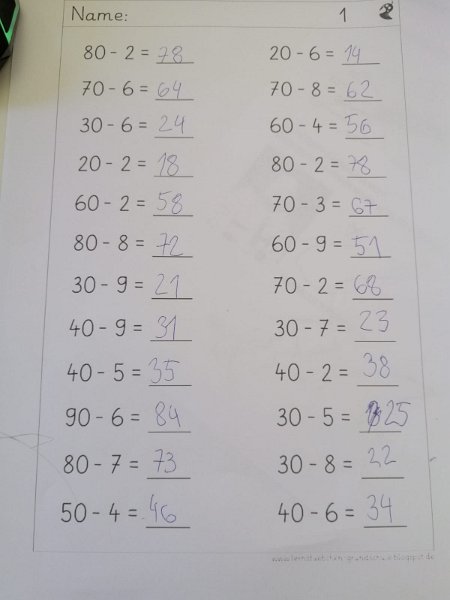 Name: 1
80 - 2 = 78
70 - 6 = 64
30 - 6 = 24
20 - 2 = 18
60 - 2 = 58
80 - 8 = 72
30 - 9 = 21
40 - 9 = 31
40 - 5 = 35
90 - 6 = 84
80 - 7 = 73
50 - 4 = 46
20 - 6 = 14
70 - 8 = 62
60 - 4 = 56
80 - 2 = 78
70 - 3 = 67
60 - 9 = 51
70 - 2 = 68
30 - 7 = 23
40 - 2 = 38
30 - 5 = 25
30 - 8 = 22
40 - 6 = 34